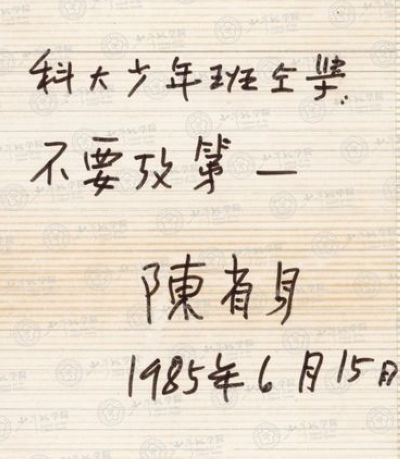 科大少年班仝学:
不要攷第一
陳省身
1985年6月15日